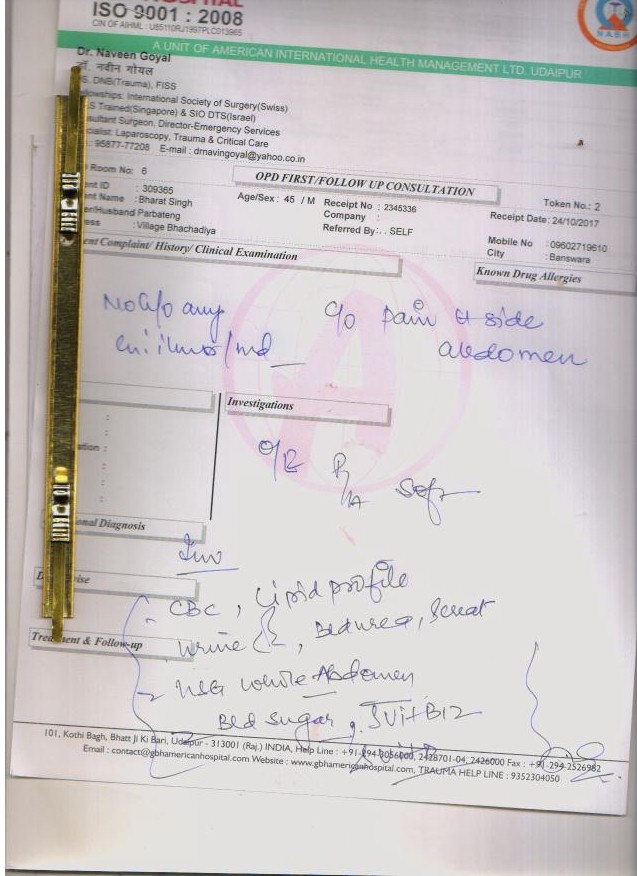 HOSPITAL
ISO 9001 : 2008
CIN OF AIHML : U85110RJ1997PLC013965
NABH
A UNIT OF AMERICAN INTERNATIONAL HEALTH MANAGEMENT LTD. UDAIPUR
Dr. Naveen Goyal
डॉ. नवीन गोयल
S, DNB(Trauma), FISS
lowships: International Society of Surgery(Swiss)
S Trained(Singapore) & SIO DTS(Israel)
sultant Surgeon, Director-Emergency Services
cialist: Laparoscopy, Trauma & Critical Care
: 95877-77208 E-mail : drnavingoyal@yahoo.co.in
Room No: 6
OPD FIRST/FOLLOW UP CONSULTATION
Token No.: 2
ent ID : 309365
Age/Sex : 45 / M
Receipt No : 2345336
Receipt Date: 24/10/2017
ent Name : Bharat Singh
Company :
er/Husband Parbateng
Referred By: . SELF
Mobile No : 09602719610
ess : Village Bhachadiya
City : Banswara
ent Complaint/ History/ Clinical Examination
Known Drug Allergies
No h/o any
c/o pain side
abdomen
Investigations
ation :
O/E P/A Soft
onal Diagnosis
Inv
D ise
CBC, Lipid profile
Treatment & Follow-up
Urine , Bld urea, Screat
USG whole Abdomen
Bld sugar, SVitB12
101, Kothi Bagh, Bhatt Ji Ki Bari, Udaipur - 313001 (Raj.) INDIA, Help Line : +91-294-3056000, 2428701-04, 2426000 Fax : +91-294-2526982
Email : contact@gbhamericanhospital.com Website : www.gbhamericanhospital.com, TRAUMA HELP LINE : 9352304050